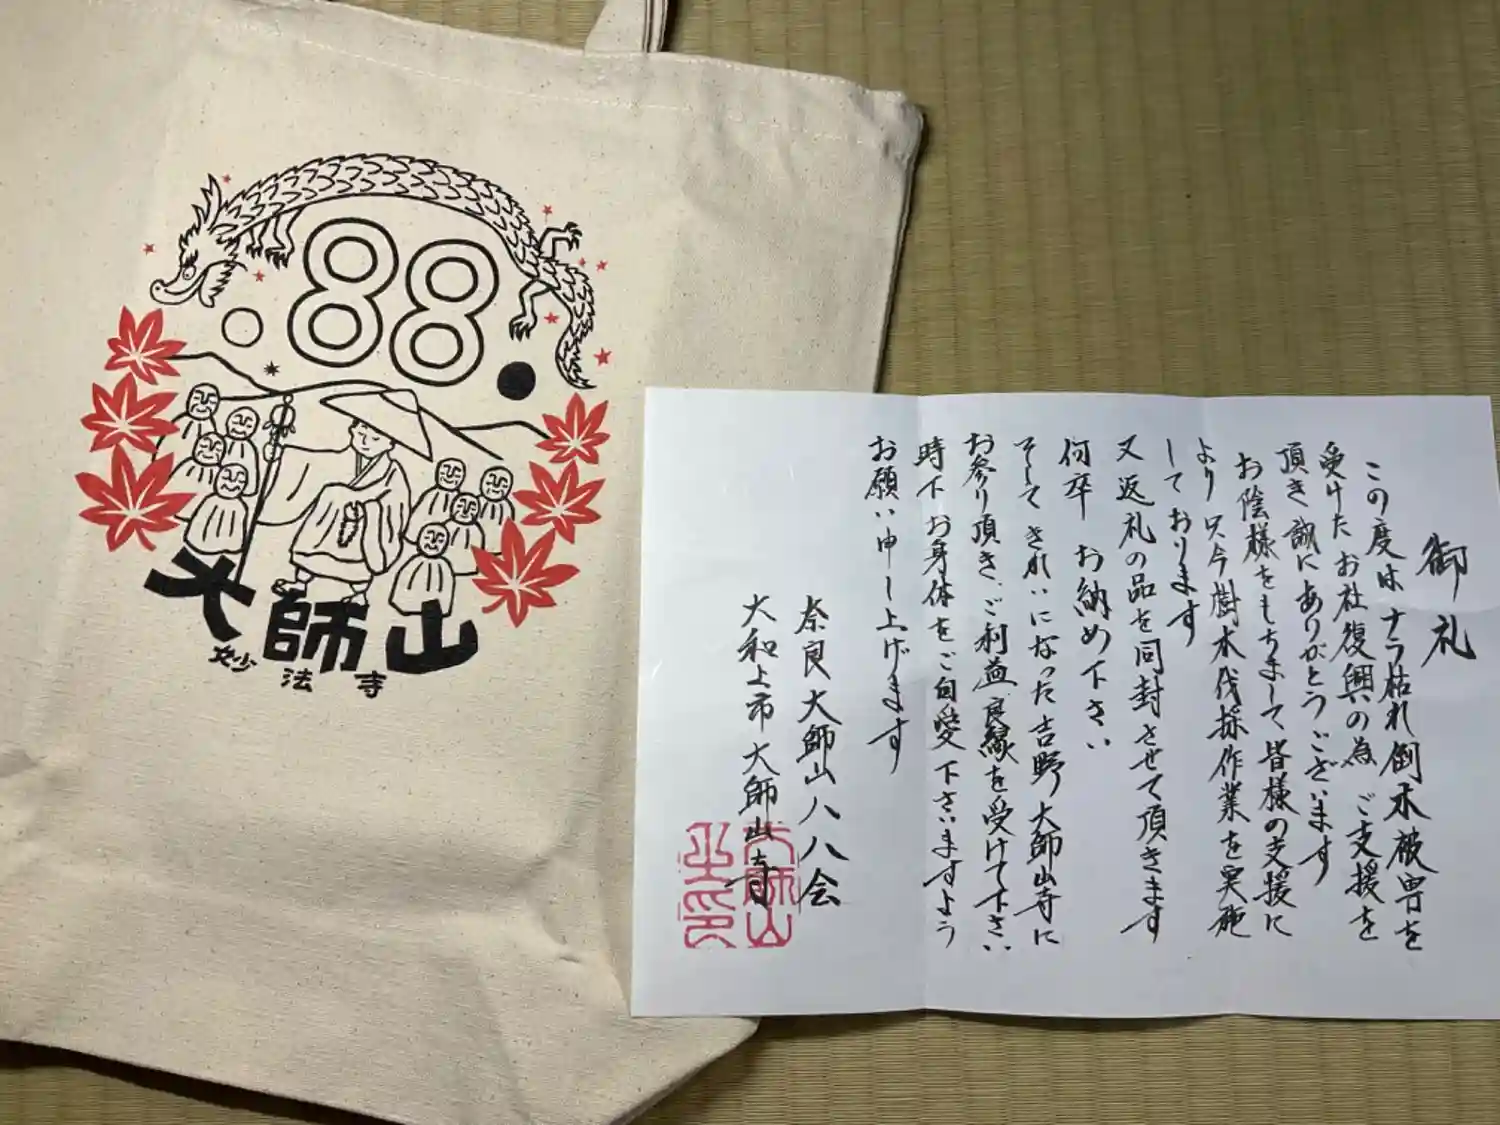 88
大師山
妙法寺
御礼
この度はナラ枯れ倒木被害を
受けたお社復興の為 ご支援を
頂き誠にありがとうございます
お陰様をもちまして皆様の支援に
より只今樹木伐採作業を実施
しております
又返礼の品を同封させて頂きます
何卒 お納め下さい
そして きれいになった吉野大師山寺に
お参り頂き、ご利益良縁を受けて下さい
時下お身体をご自愛下さいますよう
お願い申し上げます
奈良大師山八八会
大和上市大師山寺
大師山